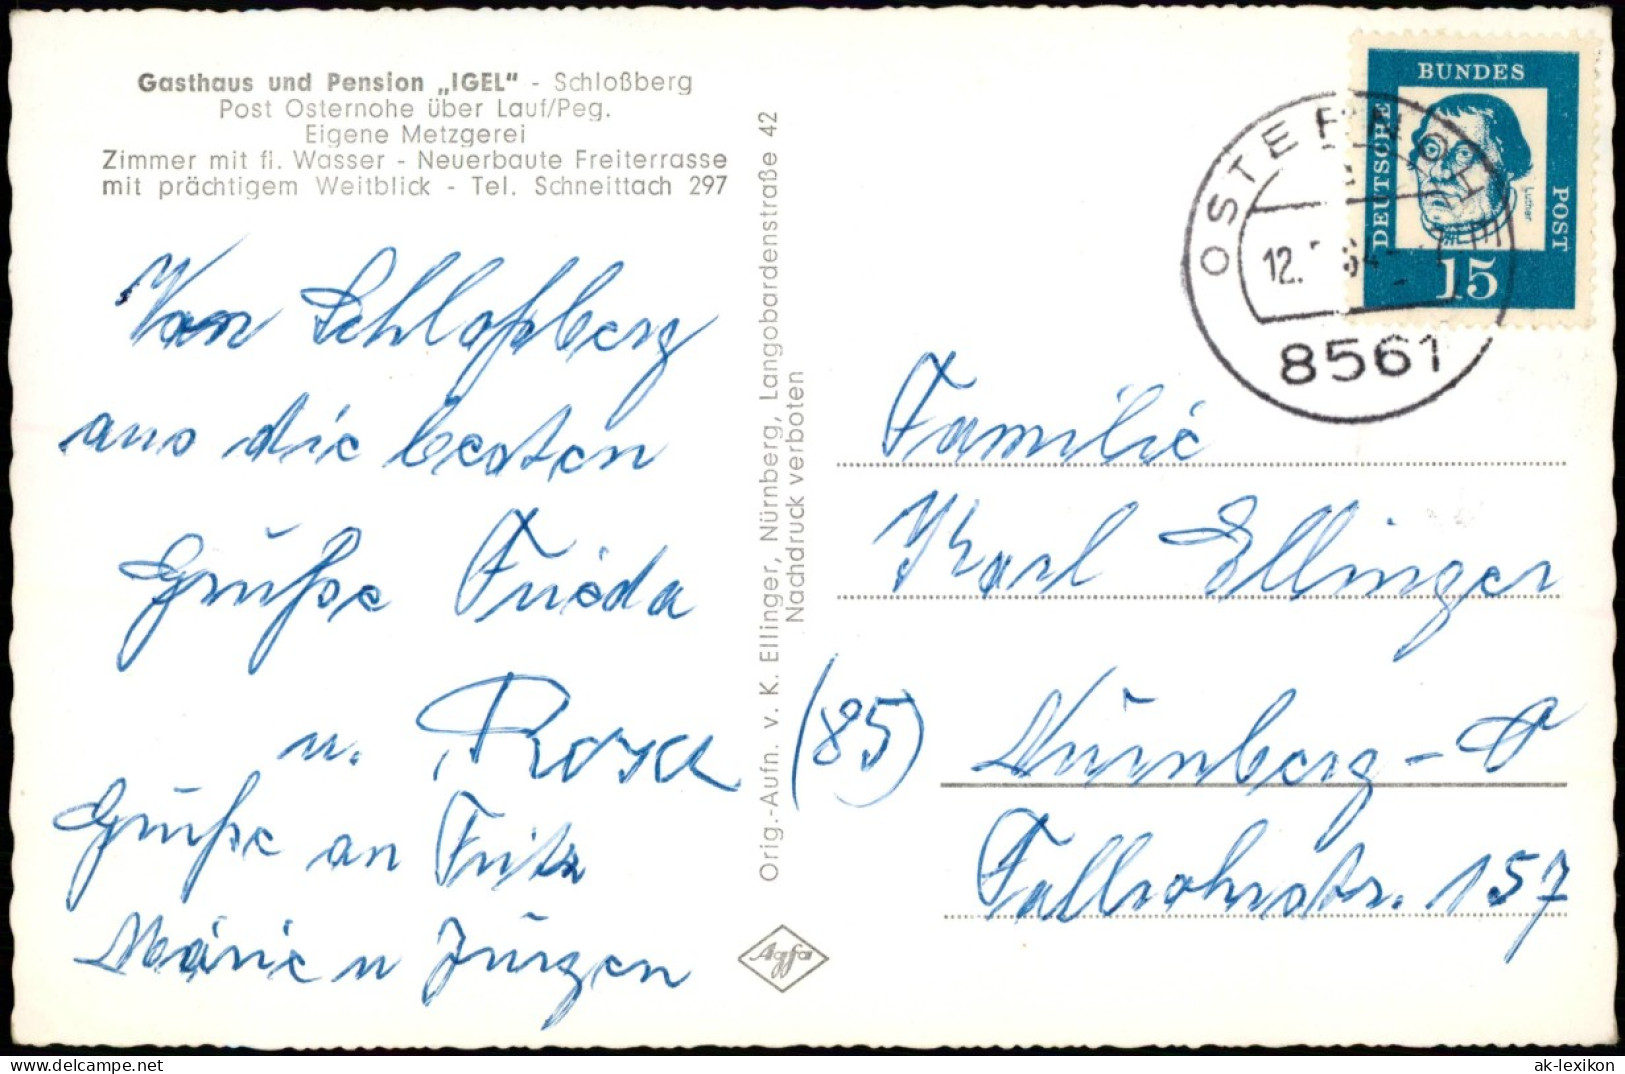 Gasthaus und Pension „IGEL" - Schloßberg
Post Osternohe über Lauf/Peg.
Eigene Metzgerei
Zimmer mit fl. Wasser - Neuerbaute Freiterrasse
mit prächtigem Weitblick - Tel. Schneittach 297
Von Schloßberg
aus die besten
Grüße Frieda
u. Rosa
Grüße an Fritz
Marie u Jürgen
Orig.-Aufn. v. K. Ellinger, Nürnberg, Langobardenstraße 42
Nachdruck verboten
Agfa
BUNDES
DEUTSCHE
POST
Luther
15
OSTERNOHE
12.
8561
Familie
Karl Ellinger
(85) Nürnberg-O
Fallrohrstr. 157
ak-lexikon